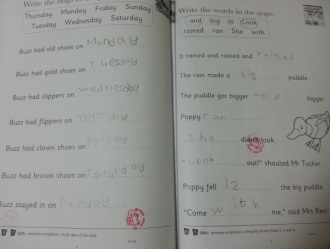 Write the days in
Thursday Monday Friday Sunday
Tuesday Wednesday Saturday
Buzz had old shoes on Monday
Buzz had gold shoes on Tuesday
Buzz had slippers on wednesday
Buzz had flippers on
Buzz had clown shoes on Friday
Buzz had brown shoes on Saturday
Buzz stayed in on Sunday
Skills
Write the words in the gaps.
and big in Look
rained ran She with
It rained and rained and rained
The rain made a big puddle.
The puddle got bigger and bigger.
Poppy ran
she didn't look.
Look out!" shouted Mr Tucker.
Poppy fell in the big puddle.
"Come with me," said Mrs Beat.
Skills